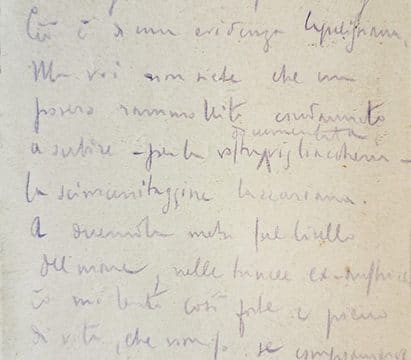 Ciò è di una evidenza
Ma voi non siete che un
povero rammollito condannato
documentata
a subire – per la vostra vigliaccheria –
la scimunitaggine
A duemila metri sul livello
del mare, nelle trincee ex-austriache
io mi sento così forte e pieno
di vita, che non so se